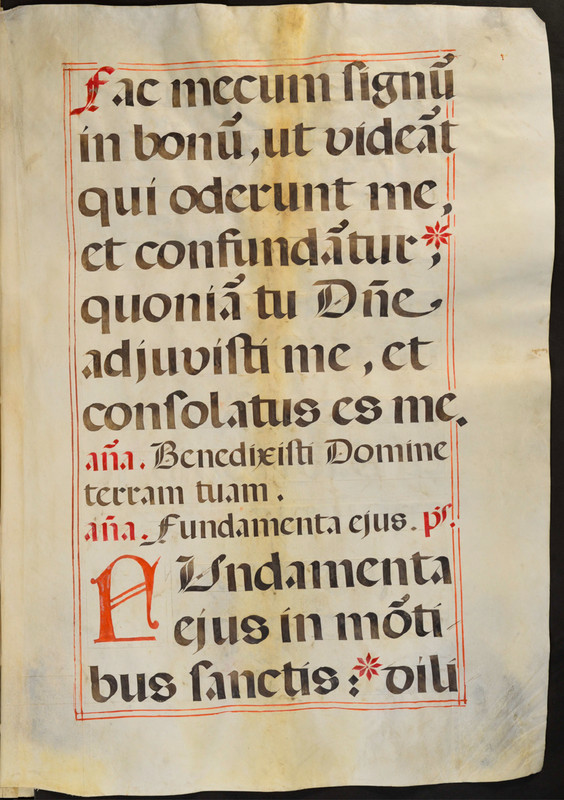 Fac mecum ſignū
in bonū, ut videāt
qui oderunt me,
et confundātur;*
quoniā tu Dñe
adjuviſti me, et
conſolatus es me.
aña. Benedixiſti Domine
terram tuam.
aña. Fundamenta ejus. pſ.
FUndamenta
ejus in mōti
bus ſanctis:* dili